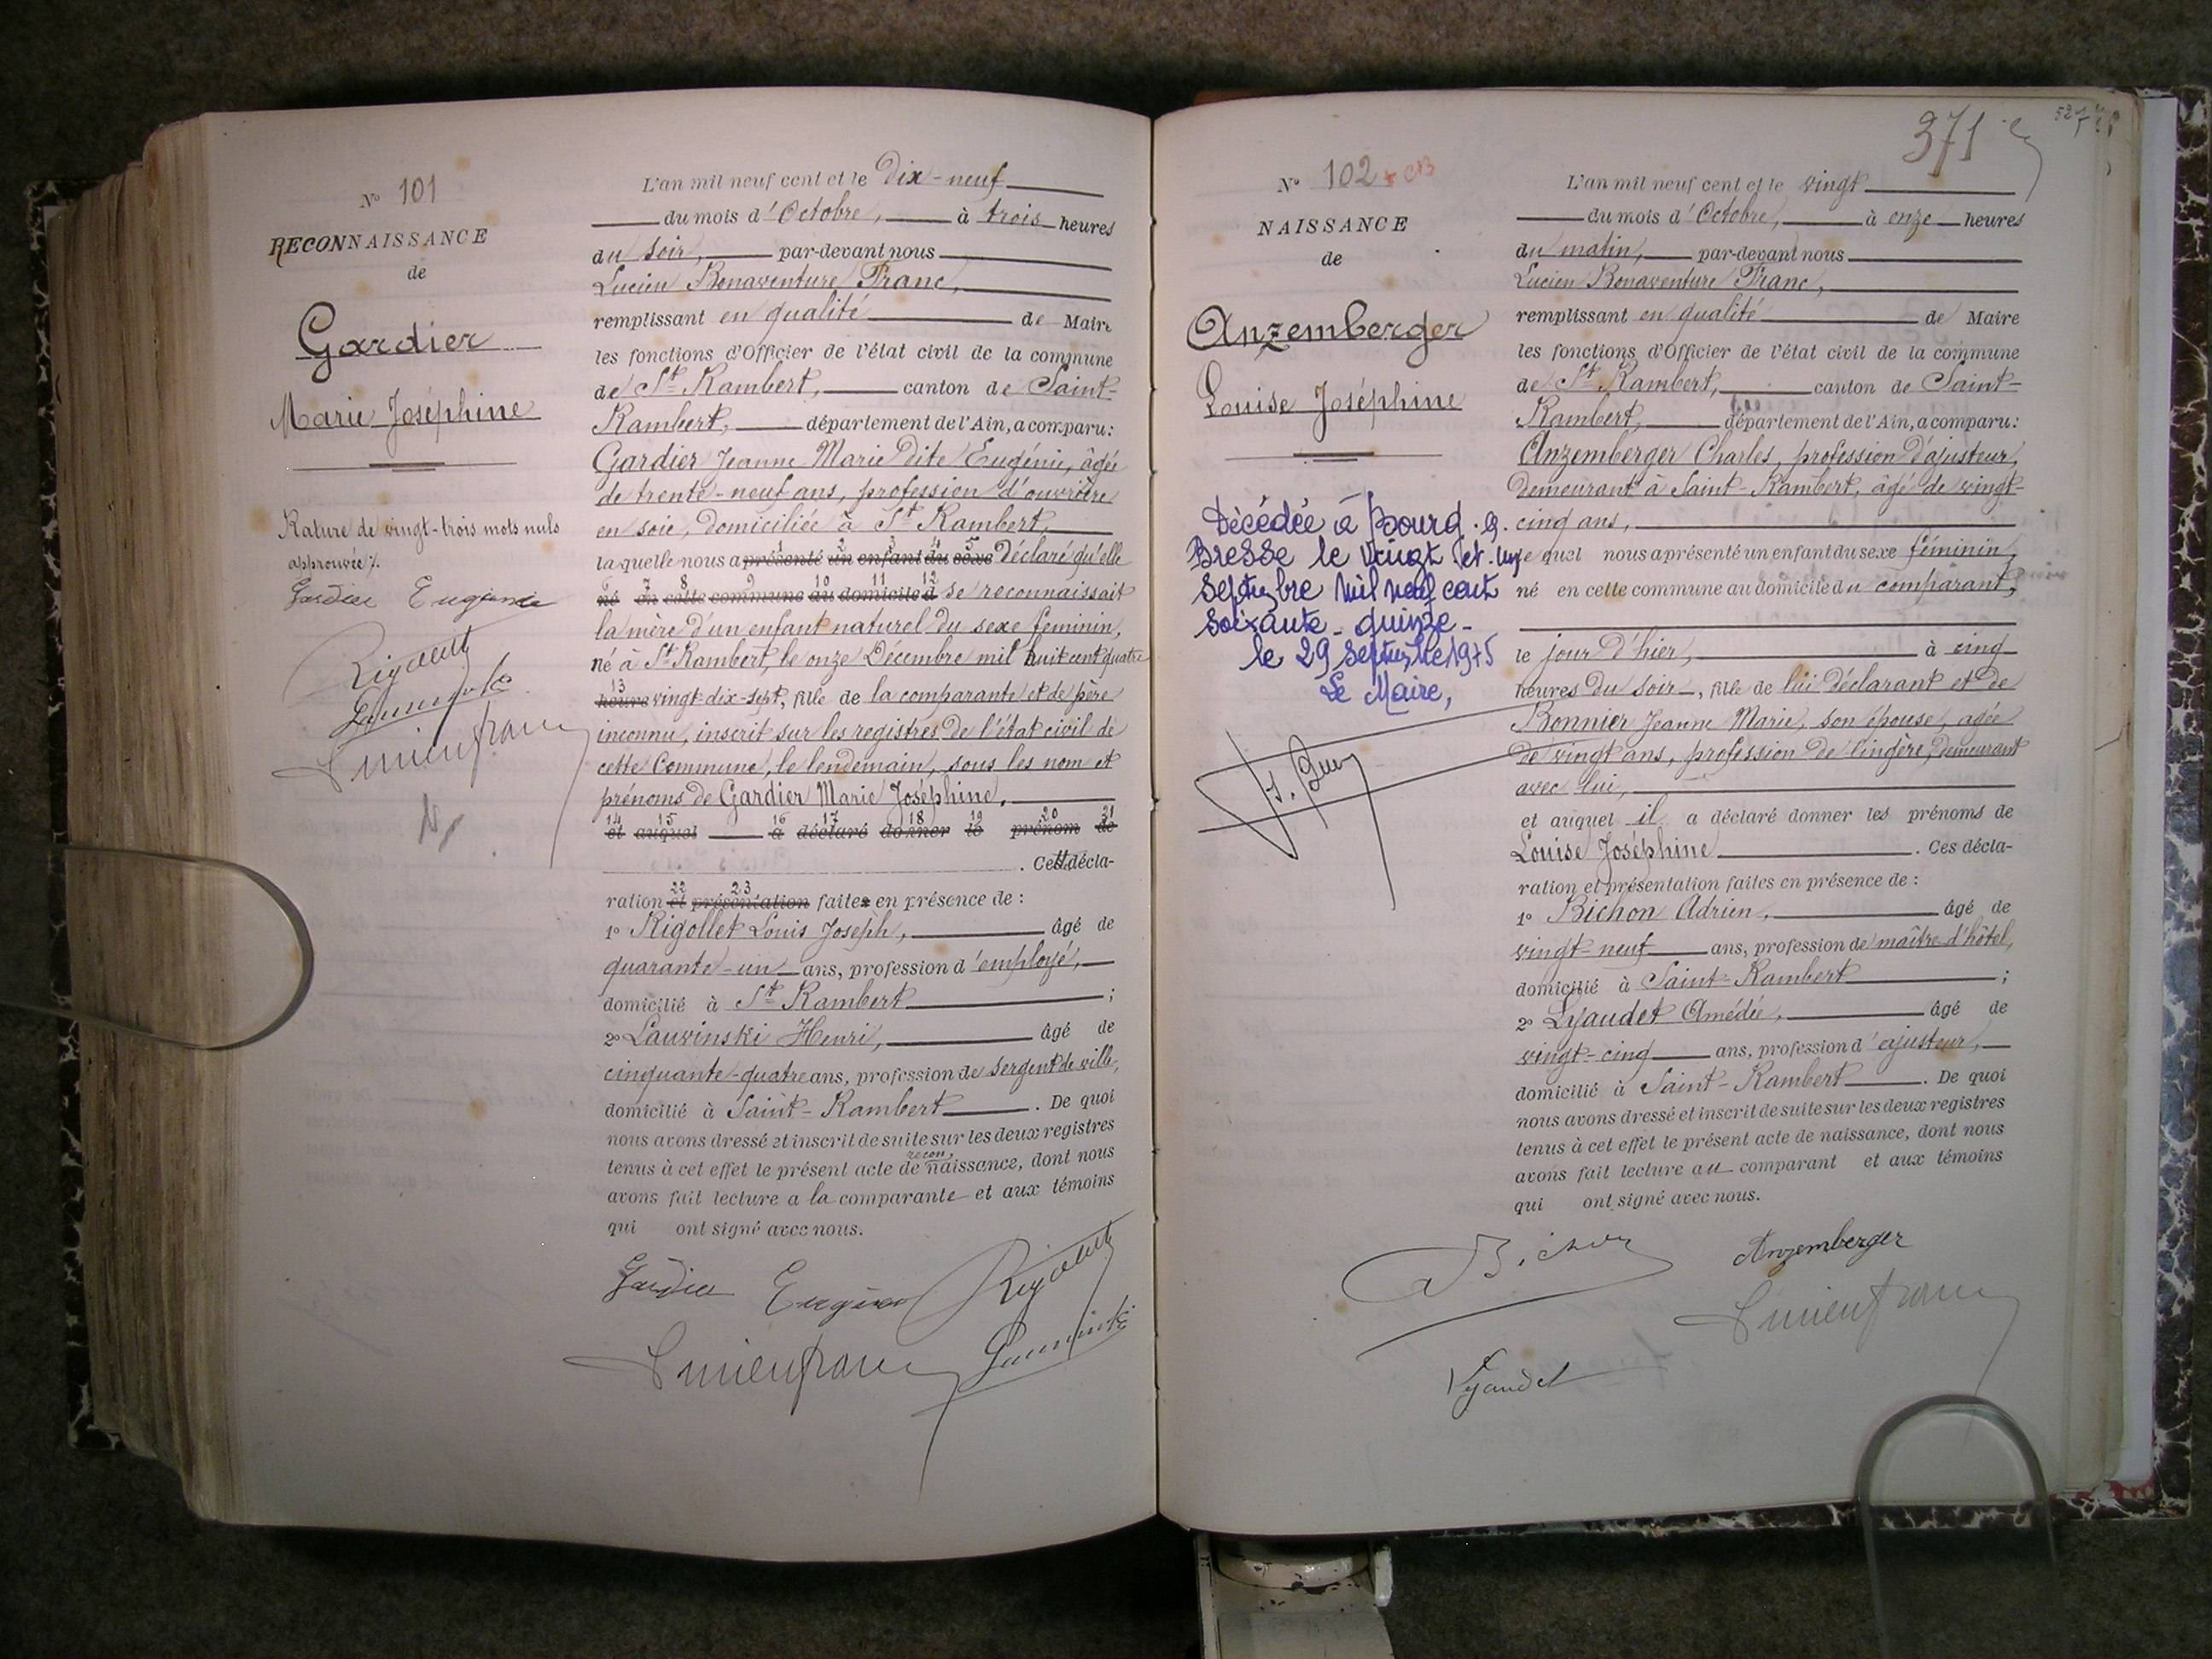 N° 101
RECONNAISSANCE
de
Gardier
Marie Joséphine
Rature de vingt-trois mots nuls
approuvée
Gardier Eugénie
L'an mil neuf cent et le Dix-neuf
du mois d'Octobre, à trois heures
du soir, par-devant nous
Lucien Bonaventure Franc,
remplissant en qualité de Maire
les fonctions d'Officier de l'état civil de la commune
de St Rambert, canton de Saint-
Rambert, département de l'Ain, a comparu:
Gardier Jeanne Marie Dite Eugénie, âgée
de trente-neuf ans, profession d'ouvrière
en soie, Domiciliée à St Rambert,
laquelle nous a présenté un enfant du sexe Déclaré qu'elle
1 2 3 4 5
né en cette commune au domicile d se reconnaissait
6 7 8 9 10 11 12
la mère d'un enfant naturel du sexe féminin,
né à St Rambert, le onze Décembre mil huit cent quatre
13
heure vingt dix-sept, fille de la comparante et de père
inconnu, inscrit sur les registres de l'état civil de
cette Commune, le lendemain, sous les nom et
prénoms de Gardier Marie Joséphine.
14 15 16 17 18 19 20 21
et auquel a déclaré donner le prénom de
. Cette décla-
22 23
ration et présentation faite en présence de :
1° Rigollet Louis Joseph, âgé de
quarante-un ans, profession d'employé,
domicilié à St Rambert ;
2° Lauvinski Henri, âgé de
cinquante-quatre ans, profession de sergent de ville,
domicilié à Saint-Rambert . De quoi
nous avons dressé et inscrit de suite sur les deux registres
recon
tenus à cet effet le présent acte de naissance, dont nous
avons fait lecture a la comparante et aux témoins
qui ont signé avec nous.
Gardier Eugénie
371
N° 102
NAISSANCE
de
Anzemberger
Louise Joséphine
Décédée à Bourg.en.
Bresse le vingt et.un
Septembre mil neuf cent
Soixante-quinze-
le 29 Septembre 1975
Le Maire,
L'an mil neuf cent et le vingt
du mois d'Octobre, à onze heures
du matin, par-devant nous
Lucien Bonaventure Franc,
remplissant en qualité de Maire
les fonctions d'Officier de l'état civil de la commune
de St Rambert, canton de Saint-
Rambert, département de l'Ain, a comparu:
Anzemberger Charles, profession d'ajusteur,
Demeurant à Saint-Rambert, âgé de vingt-
cinq ans,
lequel nous a présenté un enfant du sexe féminin,
né en cette commune au domicile du comparant,
le jour d'hier, à cinq
heures du soir, fille de lui déclarant et de
Bonnier Jeanne Marie, son épouse, agée
de vingt ans, profession de lingère, demeurant
avec lui,
et auquel il a déclaré donner les prénoms de
Louise Joséphine . Ces décla-
ration et présentation faites en présence de :
1° Bichon Adrien, âgé de
vingt-neuf ans, profession de maître d'hôtel,
domicilié à Saint-Rambert ;
2° Lyaudet Amédée, âgé de
vingt-cinq ans, profession d'ajusteur,
domicilié à Saint-Rambert . De quoi
nous avons dressé et inscrit de suite sur les deux registres
tenus à cet effet le présent acte de naissance, dont nous
avons fait lecture au comparant et aux témoins
qui ont signé avec nous.
A Bichon Anzemberger
Lyaudet